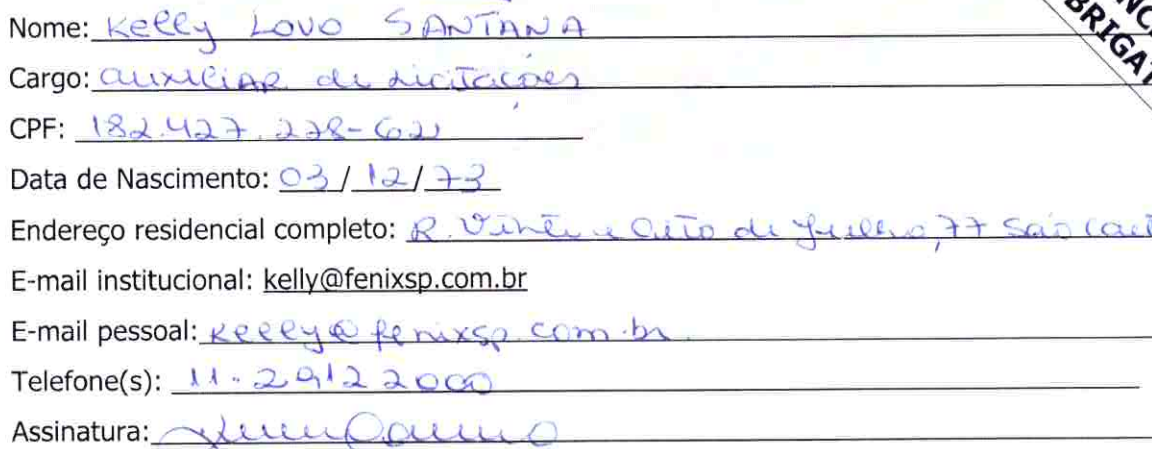 Nome: Kelly LOVO SANTANA
Cargo: auxiliAR de Licitações
CPF: 182.427.278-62
Data de Nascimento: 03/12/73
Endereço residencial completo: R. Vinte e Oito de Julho, 77 São Caet
E-mail institucional: kelly@fenixsp.com.br
E-mail pessoal: kelly@fenixsp.com.br
Telefone(s): 11-2912 2000
Assinatura: